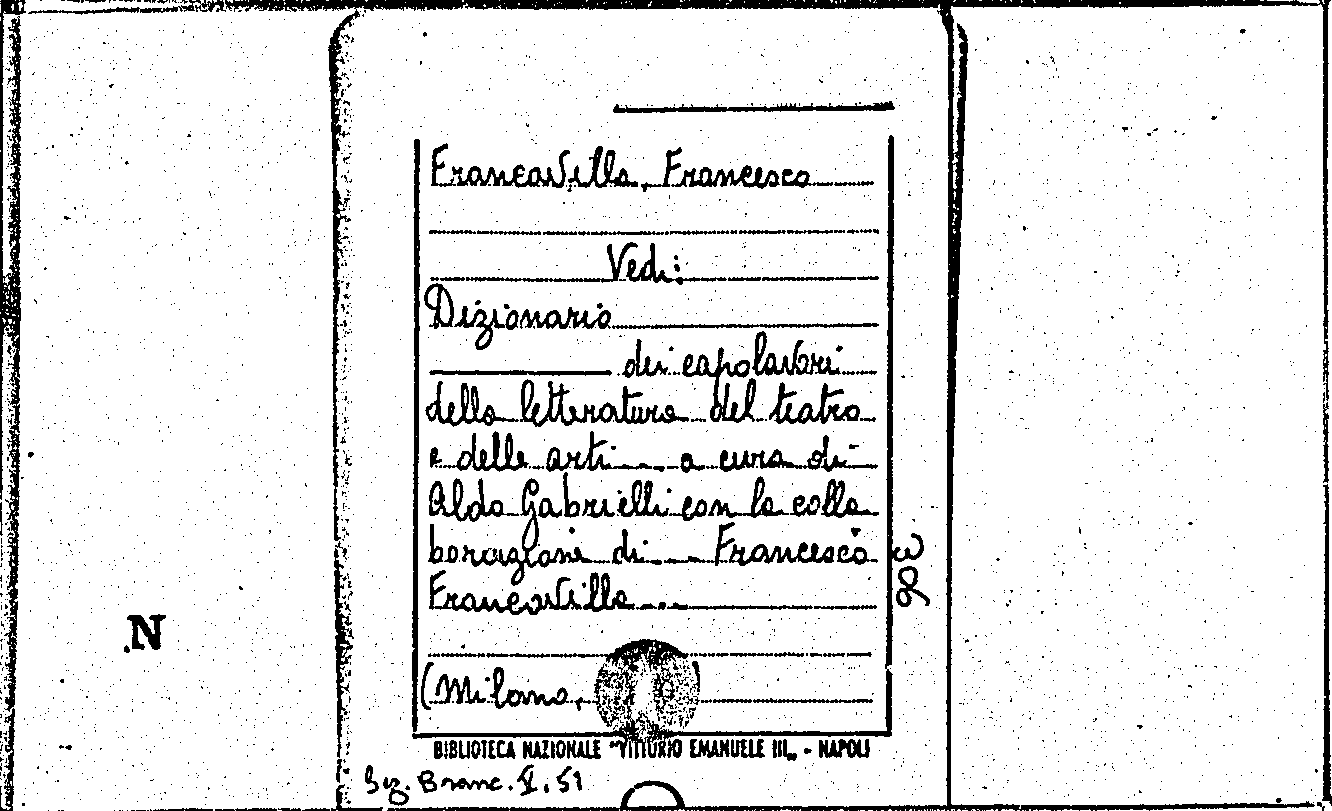 Francavilla, Francesco
Vedi:
Dizionario
dei capolavori
della letteratura del teatro
e delle arti... a cura di
Aldo Gabrielli con la colla
borazione di... Francesco
Francavilla...
(Milano,
BIBLIOTECA NAZIONALE "VITTORIO EMANUELE III„ - NAPOLI
Branc. 51
N